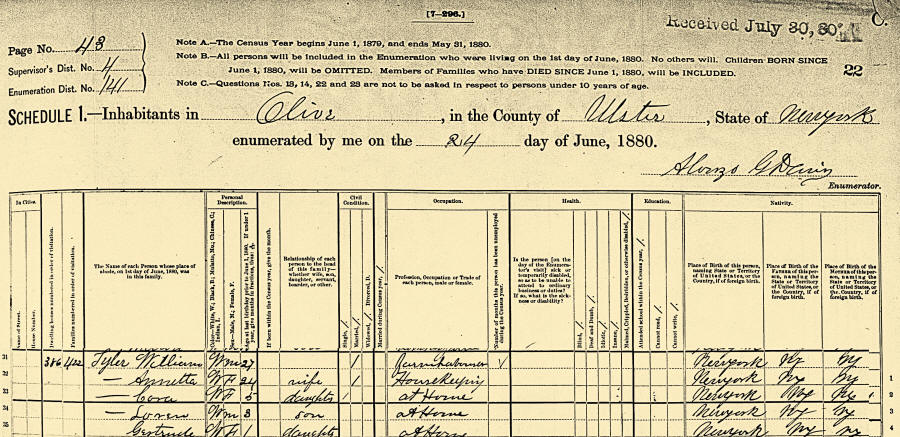 [7-296.]
Received July 30, 80
Page No. 43
Supervisor's Dist. No. 4
Enumeration Dist. No. 141
Note A.—The Census Year begins June 1, 1879, and ends May 31, 1880.
Note B.—All persons will be included in the Enumeration who were living on the 1st day of June, 1880. No others will. Children BORN SINCE
June 1, 1880, will be OMITTED. Members of Families who have DIED SINCE June 1, 1880, will be INCLUDED.
Note C.—Questions Nos. 13, 14, 22 and 23 are not to be asked in respect to persons under 10 years of age.
22
SCHEDULE 1.—Inhabitants in Olive, in the County of Ulster, State of Newyork
enumerated by me on the 24 day of June, 1880.
Alonzo G Davis
Enumerator.
In Cities.
Personal Description.
Civil Condition.
Occupation.
Health.
Education.
Nativity.
Name of Street.
House Number.
Dwelling houses numbered in order of visitation.
Families numbered in order of visitation.
The Name of each Person whose place of abode, on 1st day of June, 1880, was in this family.
Color—White, W.; Black, B.; Mulatto, Mu.; Chinese, C.; Indian, I.
Sex—Male, M.; Female, F.
Age at last birthday prior to June 1, 1880. If under 1 year, give months in fractions, thus:
If born within the Census year, give the month.
Relationship of each person to the head of this family—whether wife, son, daughter, servant, boarder, or other.
Single, /
Married, /
Widowed, / Divorced, D.
Married during Census year, /
Profession, Occupation or Trade of each person, male or female.
Number of months this person has been unemployed during the Census year.
Is the person [on the day of the Enumerator's visit] sick or temporarily disabled, so as to be unable to attend to ordinary business or duties? If so, what is the sickness or disability?
Blind, /
Deaf and Dumb, /
Idiotic, /
Insane, /
Maimed, Crippled, Bedridden, or otherwise disabled, /
Attended school within the Census year, /
Cannot read, /
Cannot write, /
Place of Birth of this person, naming State or Territory of United States, or the Country, if of foreign birth.
Place of Birth of the FATHER of this person, naming the State or Territory of United States, or the Country, if of foreign birth.
Place of Birth of the MOTHER of this person, naming the State or Territory of United States, or the Country, if of foreign birth.
31 386 422 Tyler William W m 27 / Newyork Ny Ny
32 — Annetta W F 24 wife / Housekeeping Newyork Ny Ny 1
33 — Cora W F 5 daughter / at Home Newyork Ny Ny 2
34 — Loren W m 3 son at Home Newyork Ny Ny 3
35 Gertrude W F 1 daughter at Home Newyork Ny Ny 4